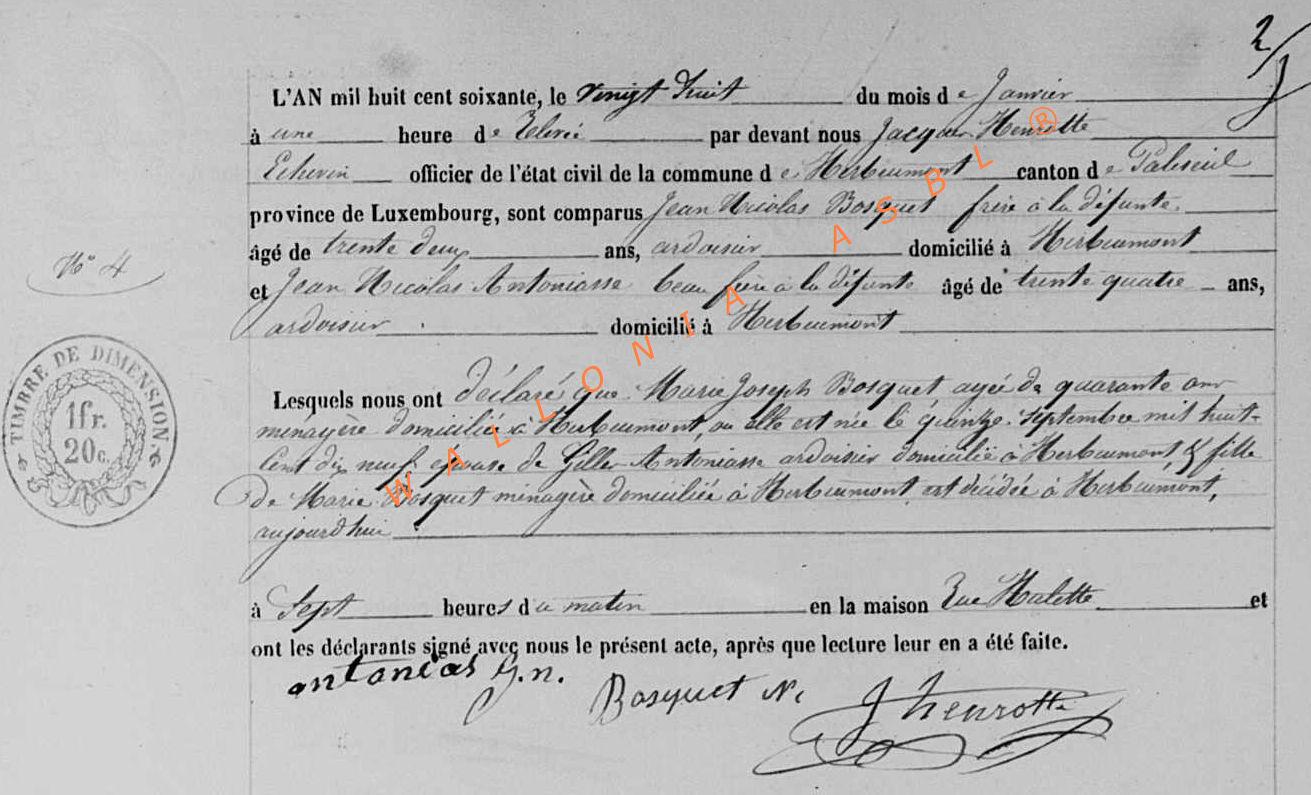 2/1
L'AN mil huit cent soixante, le vingt huit du mois de Janvier
à une heure de relevée par devant nous Jacques Henrotte
Echevin officier de l'état civil de la commune de Herbeumont canton de Paliseul
province de Luxembourg, sont comparus Jean Nicolas Bosquet frère à la défunte
âgé de trente deux ans, ardoisier domicilié à Herbeumont
N° 4
et Jean Nicolas Antoniasse beau frère à la défunte âgé de trente quatre ans,
ardoisier domicilié à Herbeumont
TIMBRE DE DIMENSION.
1 fr.
20 c.
Lesquels nous ont déclaré que Marie Joseph Bosquet agée de quarante ans
menagère domiciliée à Herbeumont, ou elle est née le quinze septembre mil huit
cent dix neuf épouse de Gilles Antoniasse ardoisier domicilié à Herbeumont & fille
De Marie Bosquet ménagère domiciliée à Herbeumont est décédée à Herbeumont,
aujourd'hui
à Sept heures du matin en la maison Rue Halette et
ont les déclarants signé avec nous le présent acte, après que lecture leur en a été faite.
antonias G.n.
Bosquet N.
J henrotte
WALLONIA ASBL ®